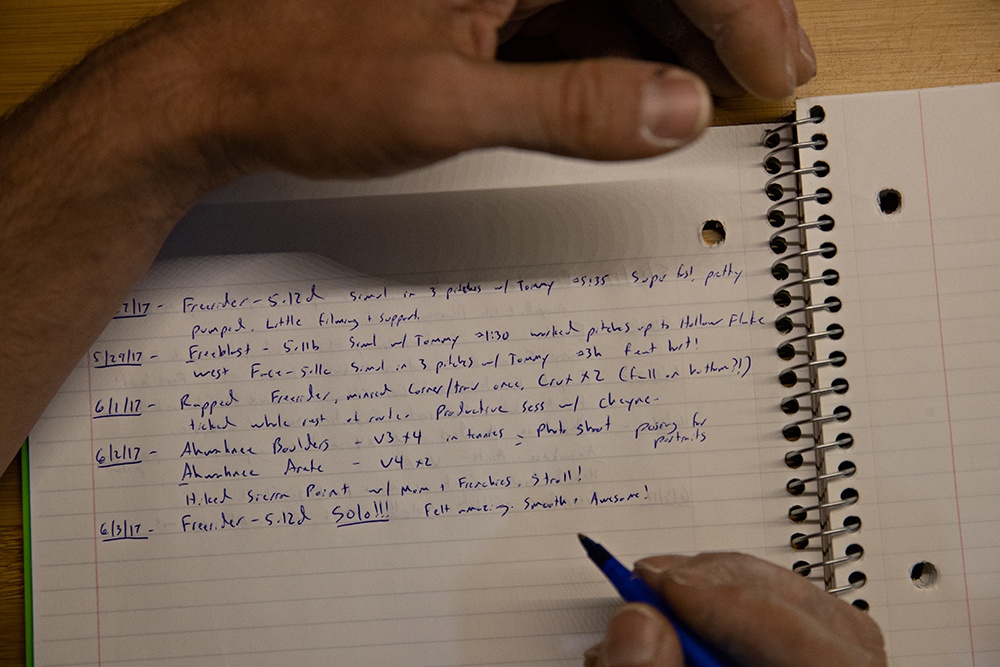 7/17 - Freerider - 5.12d Simul in 3 pitches w/ Tommy 5:35 Super fast, pretty
pumped. Little filming + support.
5/29/17 - Freeblast - 5.11b Simul w/ Tommy 1:30 worked pitches up to Hollow Flake
West Face - 5.11c Simul in 3 pitches w/ Tommy 3h feet hurt!
6/1/17 - Rapped Freerider, minced Corner/trav once, Crux x2 (fall on bottom?!)
ticked whole rest of route. Productive sess w/ Cheyne.
6/2/17 - Ahwahnee Boulders - V3 x4 in tennies - Photo shoot posing for
portraits
Ahwahnee Arete - V4 x2
Hiked Sierra Point w/ Mom + Frenchies. Stroll!
6/3/17 - Freerider - 5.12d Solo!!! Felt amazing. Smooth + Awesome!